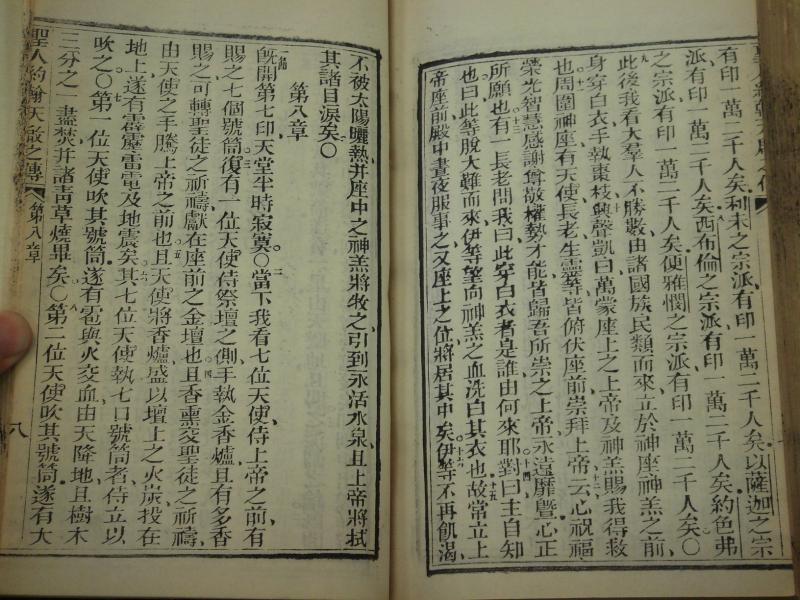 有印一萬二千人矣利未之宗派有印一萬二千人矣以薩迦之宗
派有印一萬二千人矣西布倫之宗派有印一萬二千人矣約色弗
之宗派有印一萬二千人矣便雅憫之宗派有印一萬二千人矣〇
九
此後我看大羣人不勝數由諸國族民類而來立於神座神羔之前
身穿白衣手執棗枝興聲凱曰萬蒙座上之上帝及神羔賜我得救
也周圍神座有天使長老生靈等皆俯伏座前崇拜上帝云心祝福
榮光智慧感謝尊敬權勢才能皆歸吾所崇之上帝永遠靡曁心正
所願也有一長老問我曰此穿白衣者是誰由何來耶對曰主自知
也曰此等脫大難而來伊等望向神羔之血洗白其衣也故常立上
帝座前殿中晝夜服事之又座上之位將居其中矣伊等不再飢渴
不被太陽曬熱并座中之神羔將牧之引到永活水泉且上帝將拭
其諸目淚矣〇
第八章
一節
旣開第七印天堂半時寂寞〇當下我看七位天使侍上帝之前有
賜之七個號筒復有一位天使侍祭壇之側手執金香爐且有多香
賜之可轉聖徒之祈禱獻在座前之金壇也且香熏交聖徒之祈禱
由天使之手騰上帝之前也且天使將香爐盛以壇上之火炭投在
地上遂有霹靂雷電及地震矣其七位天使執七口號筒者侍立以
吹之〇第一位天使吹其號筒遂有雹與火交血由天降地且樹木
三分之一盡焚并諸靑草燒畢矣〇第二位天使吹其號筒遂有大
聖人約翰天啟之傳 第八章 八